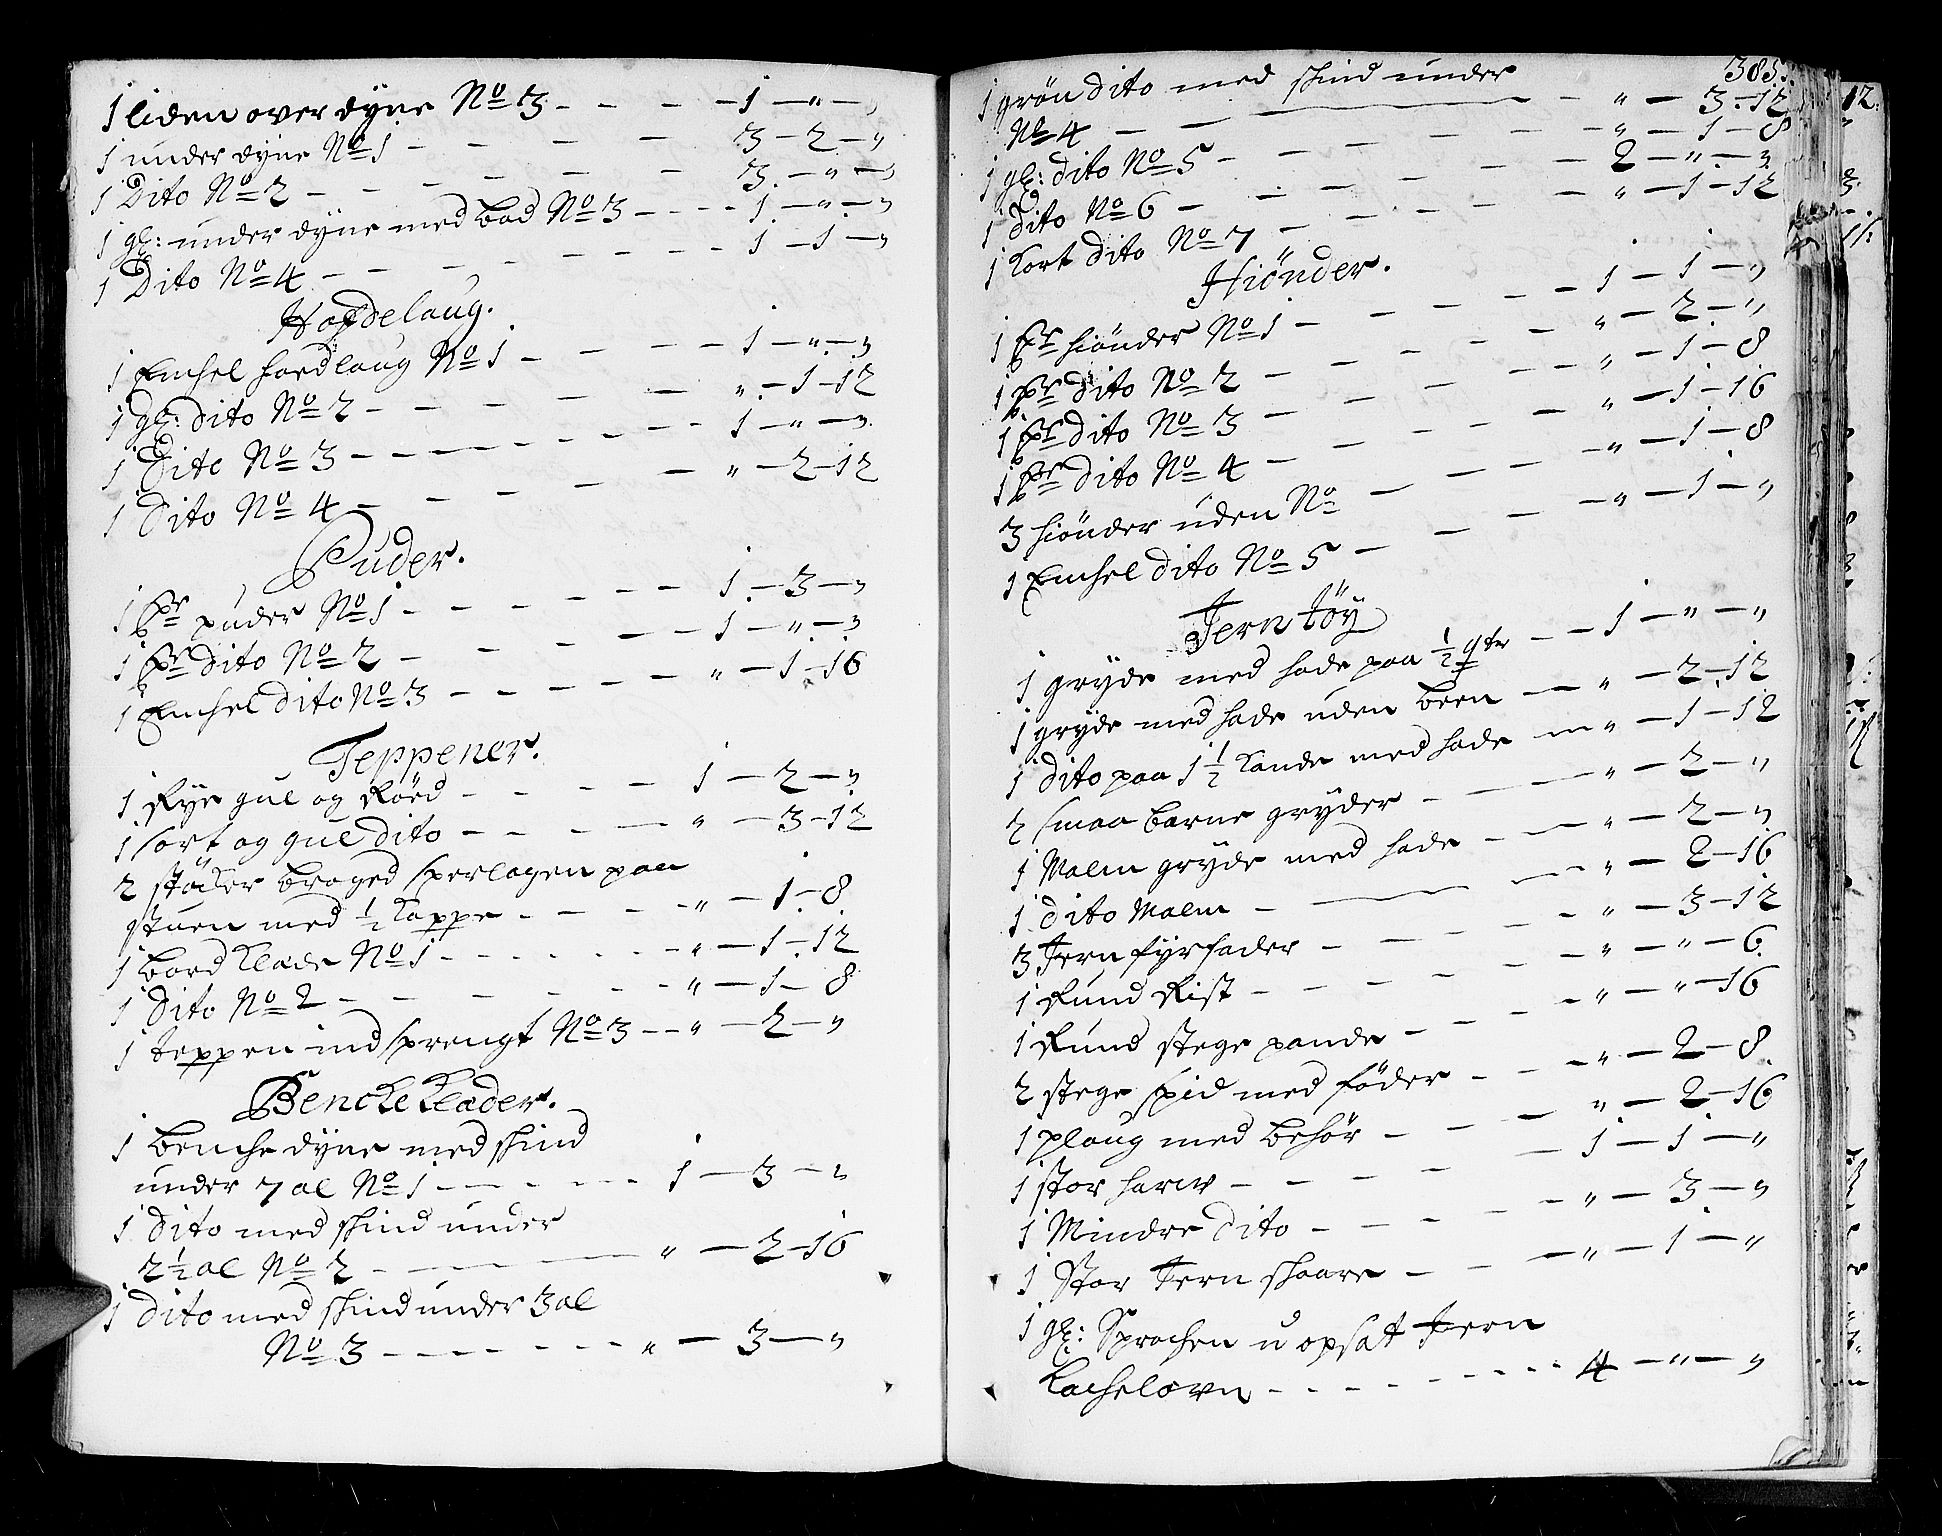 1 liden over dyne No 3 - - - - 1 - " - "
1 under dyne No 1 - - - - - 3 - 2 - "
1 Dito No 2 - - - - - - 3 - " - "
1 gl: under dyne med bod No 3 - - - - 1 - " - "
1 Dito No 4 - - - - - - - - 1 - 1 - "
Hofdelaug.
1 Enchel hoedlaug No 1 - - - - 1 - " - "
1 gl: dito No 2 - - - - - " - 1 - 12
1 Dito No 3 - - - - - - - - 1 - " - "
1 Dito No 4 - - - - - " - 2 - 12
Puder.
1 Pr puder No 1 - - - - - - 1 - 3 - "
1 Pr dito No 2 - - - - - 1 - " - "
1 Enchel dito No 3 - - - - - - " - 1 - 16
Teppener.
1 Rye gul og Röed - - - - - 1 - 2 - "
1 sort og gul dito - - - - " - 3 - 12
2 støcker broged sperlagen paa
stuen med 1/2 Kappe - - - - " - 1 - 8
1 bord Klæde No 1 - - - - - - - " - 1 - 12
1 Dito No 2 - - - - - - - " - 1 - 8
1 teppen ind sprengt No 3 - - " - 2 - "
Bencke Klæder.
1 benche dyne med skind
under 7 al No 1 - - - - - - 1 - 3 - "
1 Dito med skind under
2 1/2 al No 2 - - - " - 2 - 16
1 dito med skind under 3 al
No 3 - - - - - - - " - 3 - "
385.
1 grön dito med skind under
No 4 - - - - " - 3 - 12
1 gl: dito No 5 - - - - - - " - 1 - 8
1 dito No 6 - - - - - 2 - " - "
1 Kort dito No 7 - - - - - " - 1 - 12
Hiönder.
1 Pr hiönder No 1 - - - - - 1 - 1 - "
1 Pr dito No 2 - - - - - " - 2 - "
1 Pr dito No 3 - - - - - " - 1 - 8
1 Pr dito No 4 - - - - - " - 1 - 16
3 hiönder uden No - - - - " - 1 - 8
1 Enchel dito No 5 - - - - " - 1 - "
Jern töy
1 gryde med hode paa 1/2 qtr - - 1 - " - "
1 gryde med hade uden been - " - 2 - 12
1 dito paa 1 1/2 Kande med hade - " - 1 - 12
2 smaa barne gryder - - - " - 2 - "
1 Malm gryde med hade - - - " - 2 - "
1 dito Malm - - - - " - 2 - 16
3 Jern fyrfader - - - - - " - 3 - 12
1 Rund Rist - - - - - - " - " - 6
1 Rund stege pande - - - - " - " - 16
2 stege spid med föder - - - " - 2 - 8
1 ploug med behör - - - - " - 2 - 16
1 stor harw - - - - 1 - 1 - "
1 Mindre dito - - - - - " - 3 - "
1 Stor Jern skaare - - - " - 1 - "
1 gl: Sprochen u opsat Jern
Kachelovn - - - - - - - - 4 - " - "